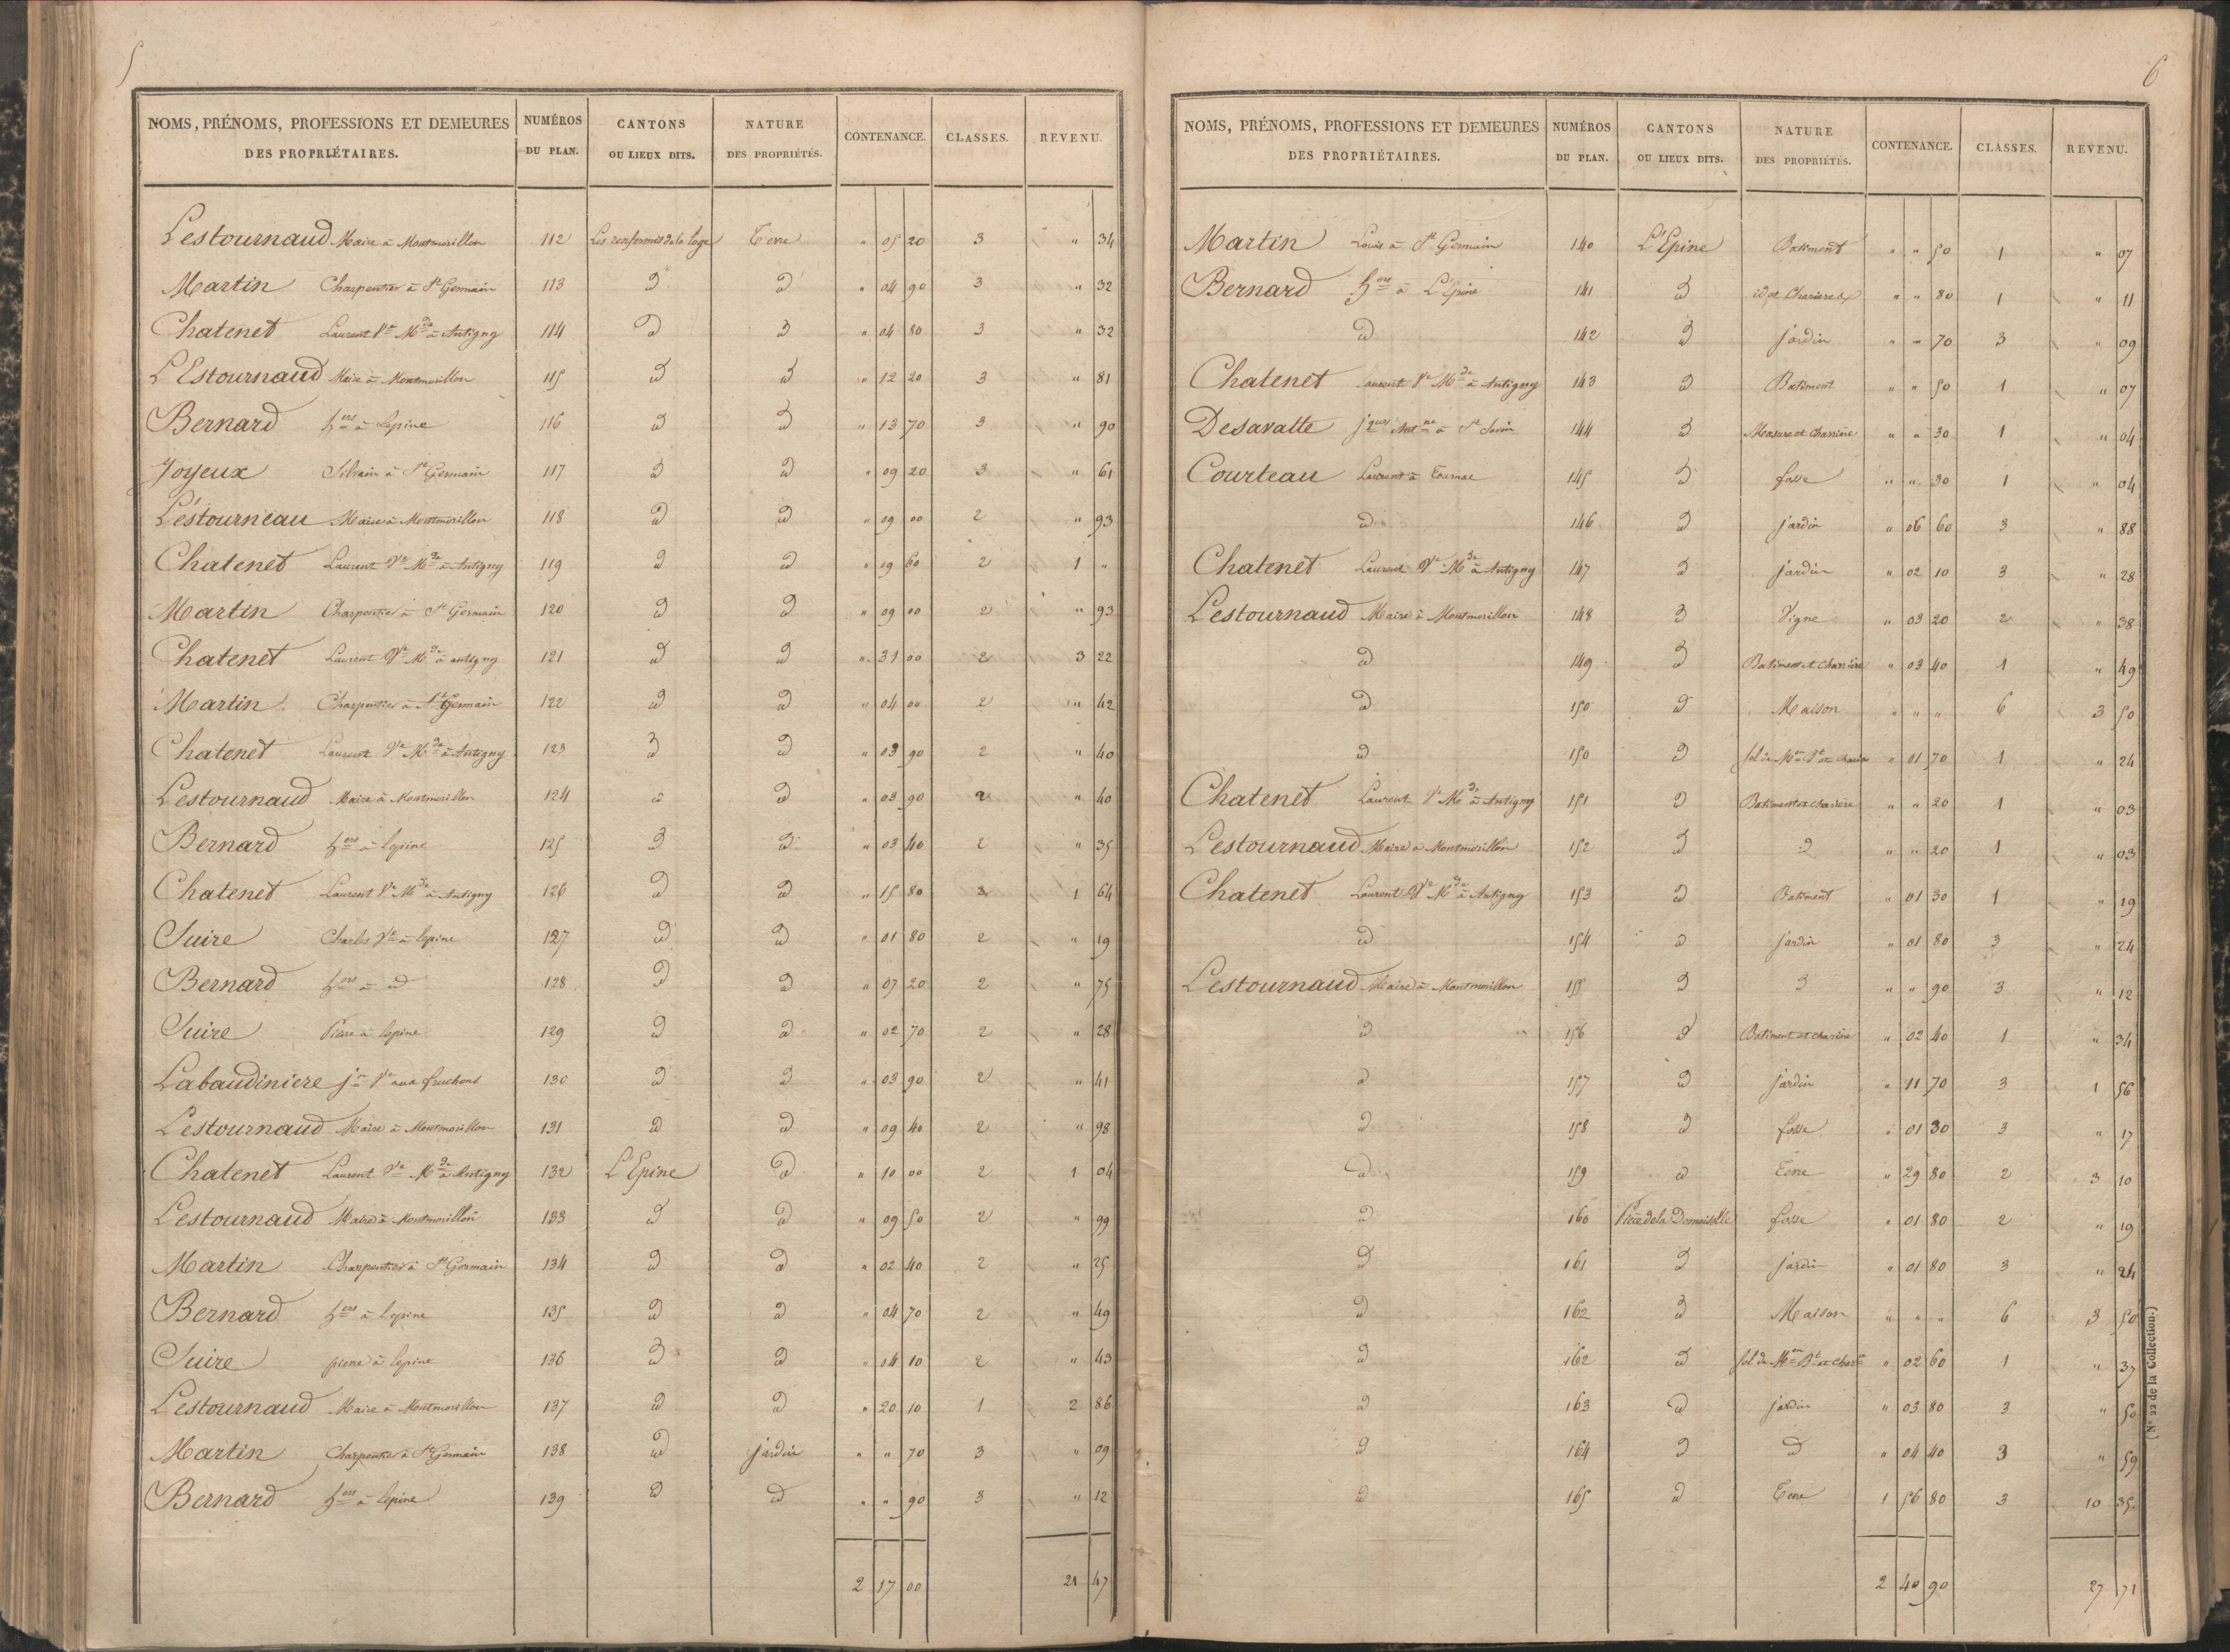 5
NOMS, PRÉNOMS, PROFESSIONS ET DEMEURES DES PROPRIÉTAIRES. NUMÉROS DU PLAN. CANTONS OU LIEUX DITS. NATURE DES PROPRIÉTÉS. CONTENANCE. CLASSES. REVENU.
Lestournaud Maire à Montmorillon 112 Les renfermis de la loge Terre " 05 20 3 " 34
Martin Charpentier à St Germain 113 d d " 04 90 3 " 32
Chatenet Laurent Ve Mde à Antigny 114 d d " 04 80 3 " 32
L'Estournaud Maire à Montmorillon 115 d d " 12 20 3 " 81
Bernard hers à Lepine 116 d d " 13 70 3 " 90
Joyeux Silvain à St Germain 117 d d " 09 20 3 " 61
Léstourneau Maire à Montmorillon 118 d d " 09 00 2 " 93
Chatenet Laurent Ve Mde à Antigny 119 d d " 09 60 2 1 "
Martin Charpentier à St Germain 120 d d " 09 00 2 " 93
Chatenet Laurent Ve Mde à antigny 121 d d " 31 00 2 3 22
Martin Charpentier à St Germain 122 d d " 04 00 2 " 42
Chatenet Laurent Ve Mde à Antigny 123 d d " 03 90 2 " 40
Lestournaud Maire à Montmorillon 124 d d " 03 90 2 " 40
Bernard hers à lepine 125 d d " 03 40 2 " 35
Chatenet Laurent Ve Mde à Antigny 126 d d " 15 80 2 1 64
Suire Charles Ve à lepine 127 d d " 01 80 2 " 19
Bernard hers à d 128 d d " 07 20 2 " 75
Suire Pierre à lepine 129 d d " 02 70 2 " 28
Labaudiniere jn Ve aux fruchons 130 d d " 03 90 2 " 41
Lestournaud Maire à Montmorillon 131 d d " 09 40 2 " 98
Chatenet Laurent Ve Mde à Antigny 132 L'Epine d " 10 00 2 1 04
Lestournaud Maire à Montmorillon 133 d d " 09 50 2 " 99
Martin Charpentier à St Germain 134 d d " 02 40 2 " 25
Bernard hers à lepine 135 d d " 04 70 2 " 49
Suire pierre à lepine 136 d d " 04 10 2 " 43
Lestournaud Maire à Montmorillon 137 d d " 20 10 1 2 86
Martin Charpentier à St Germain 138 d jardin " " 70 3 " 09
Bernard hers à lepine 139 d d " " 90 3 " 12
2 17 00 21 47
6
NOMS, PRÉNOMS, PROFESSIONS ET DEMEURES DES PROPRIÉTAIRES. NUMÉROS DU PLAN. CANTONS OU LIEUX DITS. NATURE DES PROPRIÉTÉS. CONTENANCE. CLASSES. REVENU.
Martin Louis à St Germain 140 L'Epine Batiment " " 50 1 " 07
Bernard hers à L'Epine 141 d id et Chariere " " 80 1 " 11
d 142 d jardin " " 70 3 " 09
Chatenet Laurent Ve Mde à Antigny 143 d Batiment " " 50 1 " 07
Desavatte jques Antne à St Savin 144 d Measure et Charriere " " 30 1 " 04
Courteau Laurent à Tournac 145 d fosse " " 30 1 " 04
d 146 d jardin " 06 60 3 " 88
Chatenet Laurent Ve Mde à Antigny 147 d jardin " 02 10 3 " 28
Lestournaud Maire à Montmorillon 148 d Vigne " 03 20 2 " 38
d 149 d Batiment et Charriere " 03 40 1 " 49
d 150 d Maison " " " 6 3 50
d 150 d sol de Mon Bt et charre " 01 70 1 " 24
Chatenet Laurent Ve Mde à Antigny 151 d Batiment et charriere " " 20 1 " 03
Lestournaud Maire à Montmorillon 152 d d " " 20 1 " 03
Chatenet Laurent Ve Mde à Antigny 153 d Batiment " 01 30 1 " 19
d 154 d jardin " 01 80 3 " 24
Lestournaud Maire à Montmorillon 155 d d " " 90 3 " 12
d 156 d Batiment et charriere " 02 40 1 " 34
d 157 d jardin " 11 70 3 1 56
d 158 d fosse " 01 30 3 " 17
d 159 d Terre " 29 80 2 3 10
d 160 Piece de la Demoiselle fosse " 01 80 2 " 19
d 161 d jardin " 01 80 3 " 24
d 162 d Maison " " " 6 3 50
d 162 d sol de Mon Bt et charre " 02 60 1 " 37
d 163 d jardin " 03 80 3 " 50
d 164 d d " 04 40 3 " 59
d 165 d Terre 1 56 80 3 10 35
2 40 90 27 71
(N° 22 de la Collection.)